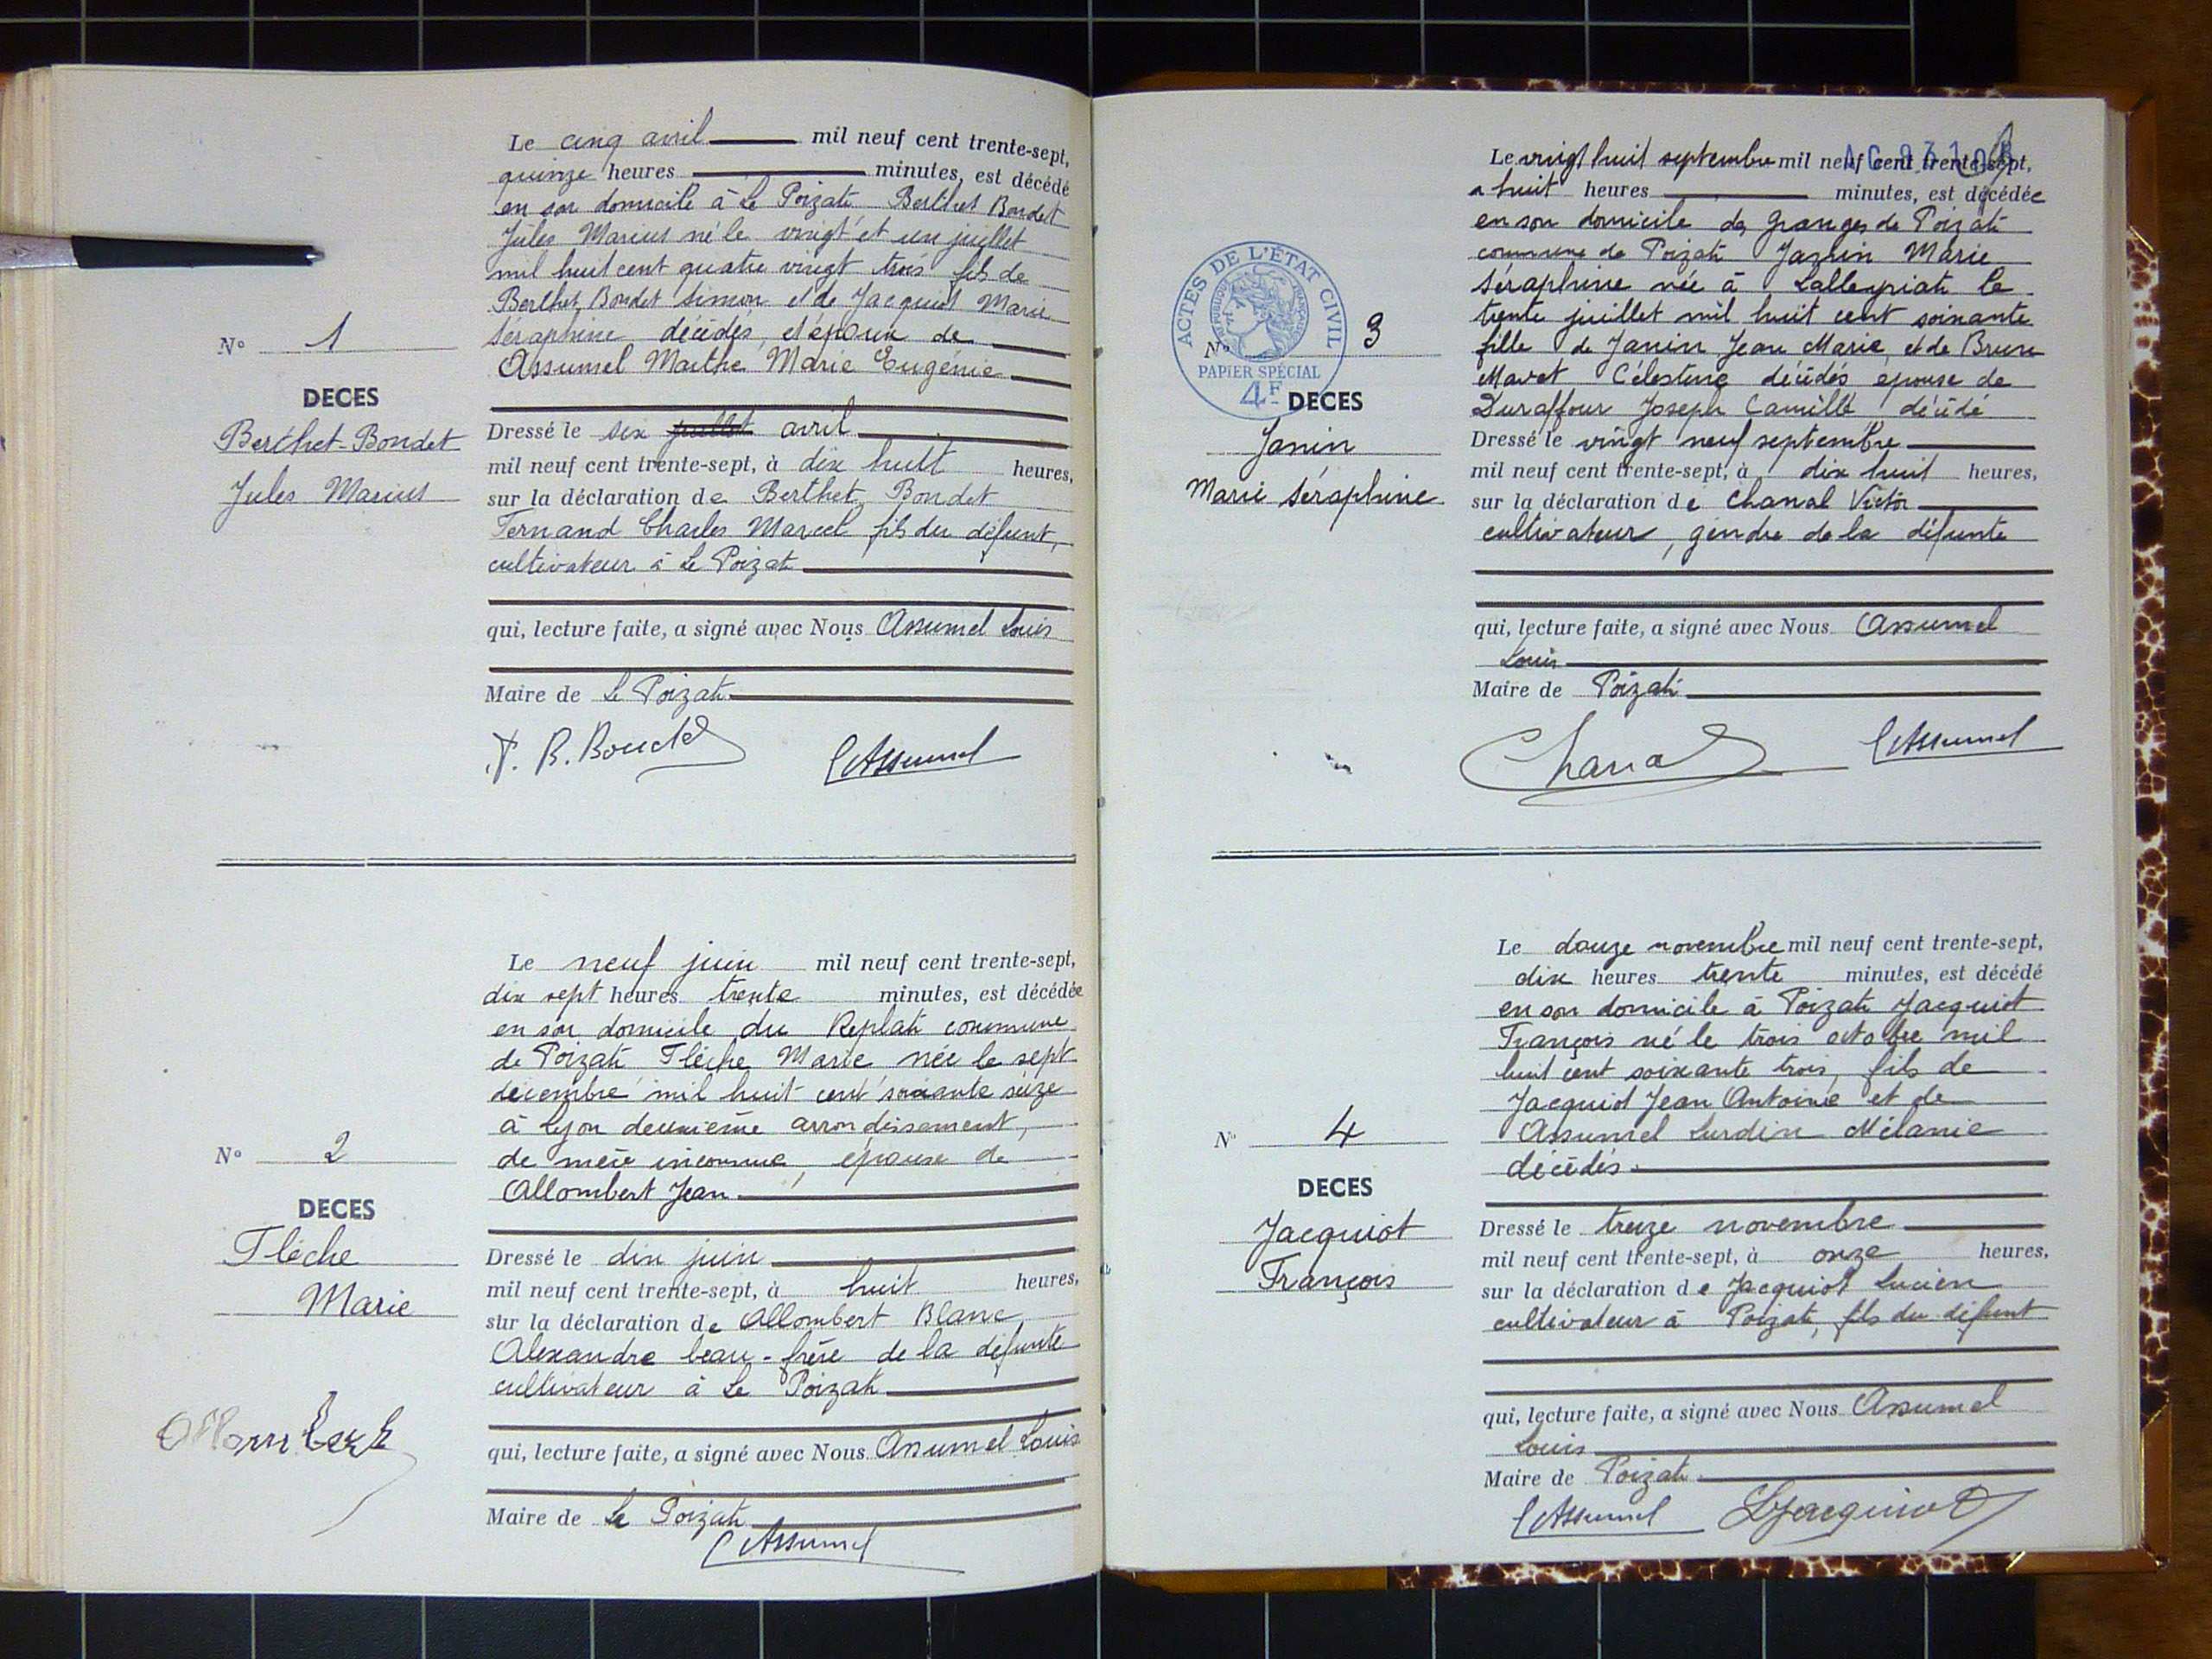 Le cinq avril mil neuf cent trente-sept,
quinze heures minutes, est décédé
en son domicile à Le Poizat Berthet Bondet
Jules Marius né le vingt et un juillet
mil huit cent quatre vingt trois fils de
Berthet Bondet Simon et de Jacquiot Marie
Séraphine décédés, et époux de
Assumel Marthe Marie Eugénie
N° 1
DECES
Berthet-Bondet
Jules Marius
Dressé le six juillet avril
mil neuf cent trente-sept, à dix huit heures,
sur la déclaration de Berthet Bondet
Fernand Charles Marcel fils du défunt,
cultivateur à Le Poizat
qui, lecture faite, a signé avec Nous Assumel Louis
Maire de Le Poizat
F. B. Bondet LAssumel
Le neuf juin mil neuf cent trente-sept,
dix sept heures trente minutes, est décédée
en son domicile du Replat commune
de Poizat Flèche Marie née le sept
décembre mil huit cent soixante seize
à Lyon deuxième arrondissement,
de mère inconnue, épouse de
Allombert Jean
N° 2
DECES
Flèche
Marie
Dressé le dix juin
mil neuf cent trente-sept, à huit heures,
sur la déclaration de Allombert Blanc
Alexandre beau-frère de la défunte
cultivateur à Le Poizat
Allombert
qui, lecture faite, a signé avec Nous Assumel Louis
Maire de Le Poizat
LAssumel
Le vingt huit septembre mil neuf cent trente-sept,
a huit heures minutes, est décédée
en son domicile des Granges de Poizat
commune de Poizat Janin Marie
Séraphine née à Lalleyriat le
trente juillet mil huit cent soixante
fille de Janin Jean Marie, et de Brun
Mavet Célestine décédés épouse de
Duraffour Joseph Camille décédé
ACTES DE L'ÉTAT CIVIL
RÉPUBLIQUE FRANÇAISE
PAPIER SPÉCIAL
4F
N° 3
DECES
Janin
Marie Séraphine
Dressé le vingt neuf septembre
mil neuf cent trente-sept, à dix huit heures,
sur la déclaration de Chanal Victor
cultivateur, gendre de la défunte
qui, lecture faite, a signé avec Nous Assumel
Louis
Maire de Poizat
Chanal LAssumel
Le douze novembre mil neuf cent trente-sept,
dix heures trente minutes, est décédé
en son domicile à Poizat Jacquiot
François né le trois octobre mil
huit cent soixante trois, fils de
Jacquiot Jean Antoine et de
Assumel Lurdin Mélanie
décédés.
N° 4
DECES
Jacquiot
François
Dressé le treize novembre
mil neuf cent trente-sept, à onze heures,
sur la déclaration de Jacquiot Lucien
cultivateur à Poizat, fils du défunt
qui, lecture faite, a signé avec Nous Assumel
Louis
Maire de Poizat
LAssumel LJacquiot